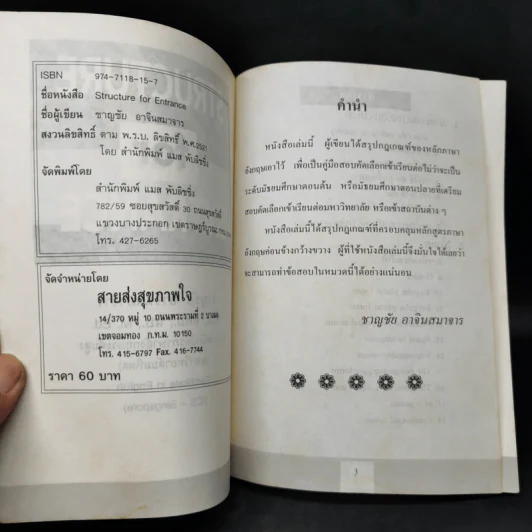 ISBN 974-7118-15-7
ชื่อหนังสือ Structure for Entrance
ชื่อผู้เขียน ชาญชัย อาจินสมาจาร
สงวนลิขสิทธิ์ ตาม พ.ร.บ. ลิขสิทธิ์ พ.ศ.2521
โดย สำนักพิมพ์ แมส พับลิชชิ่ง
จัดพิมพ์โดย
สำนักพิมพ์ แมส พับลิชชิ่ง
782/59 ซอยสุขสวัสดิ์ 30 ถนนสุขสวัสดิ์
แขวงบางปะกอก เขตราษฎร์บูรณะ
โทร. 427-6265
จัดจำหน่ายโดย
สายส่งสุขภาพใจ
14/370 หมู่ 10 ถนนพระรามที่ 2 บางมด
เขตจอมทอง ก.ท.ม. 10150
โทร. 415-6797 Fax. 416-7744
ราคา 60 บาท
คำนำ
หนังสือเล่มนี้ ผู้เขียนได้สรุปกฎเกณฑ์ของหลักภาษา
อังกฤษเอาไว้ เพื่อเป็นคู่มือสอบคัดเลือกเข้าเรียนต่อไม่ว่าจะเป็น
ระดับมัธยมศึกษาตอนต้น หรือมัธยมศึกษาตอนปลายที่เตรียม
สอบคัดเลือกเข้าเรียนต่อมหาวิทยาลัย หรือเข้าสถาบันต่าง ๆ
หนังสือเล่มนี้ได้สรุปกฎเกณฑ์ที่ครอบคลุมหลักสูตรภาษา
อังกฤษค่อนข้างกว้างขวาง ผู้ที่ใช้หนังสือเล่มนี้จึงมั่นใจได้เลยว่า
จะสามารถทำข้อสอบในหมวดนี้ได้อย่างแน่นอน
ชาญชัย อาจินสมาจาร